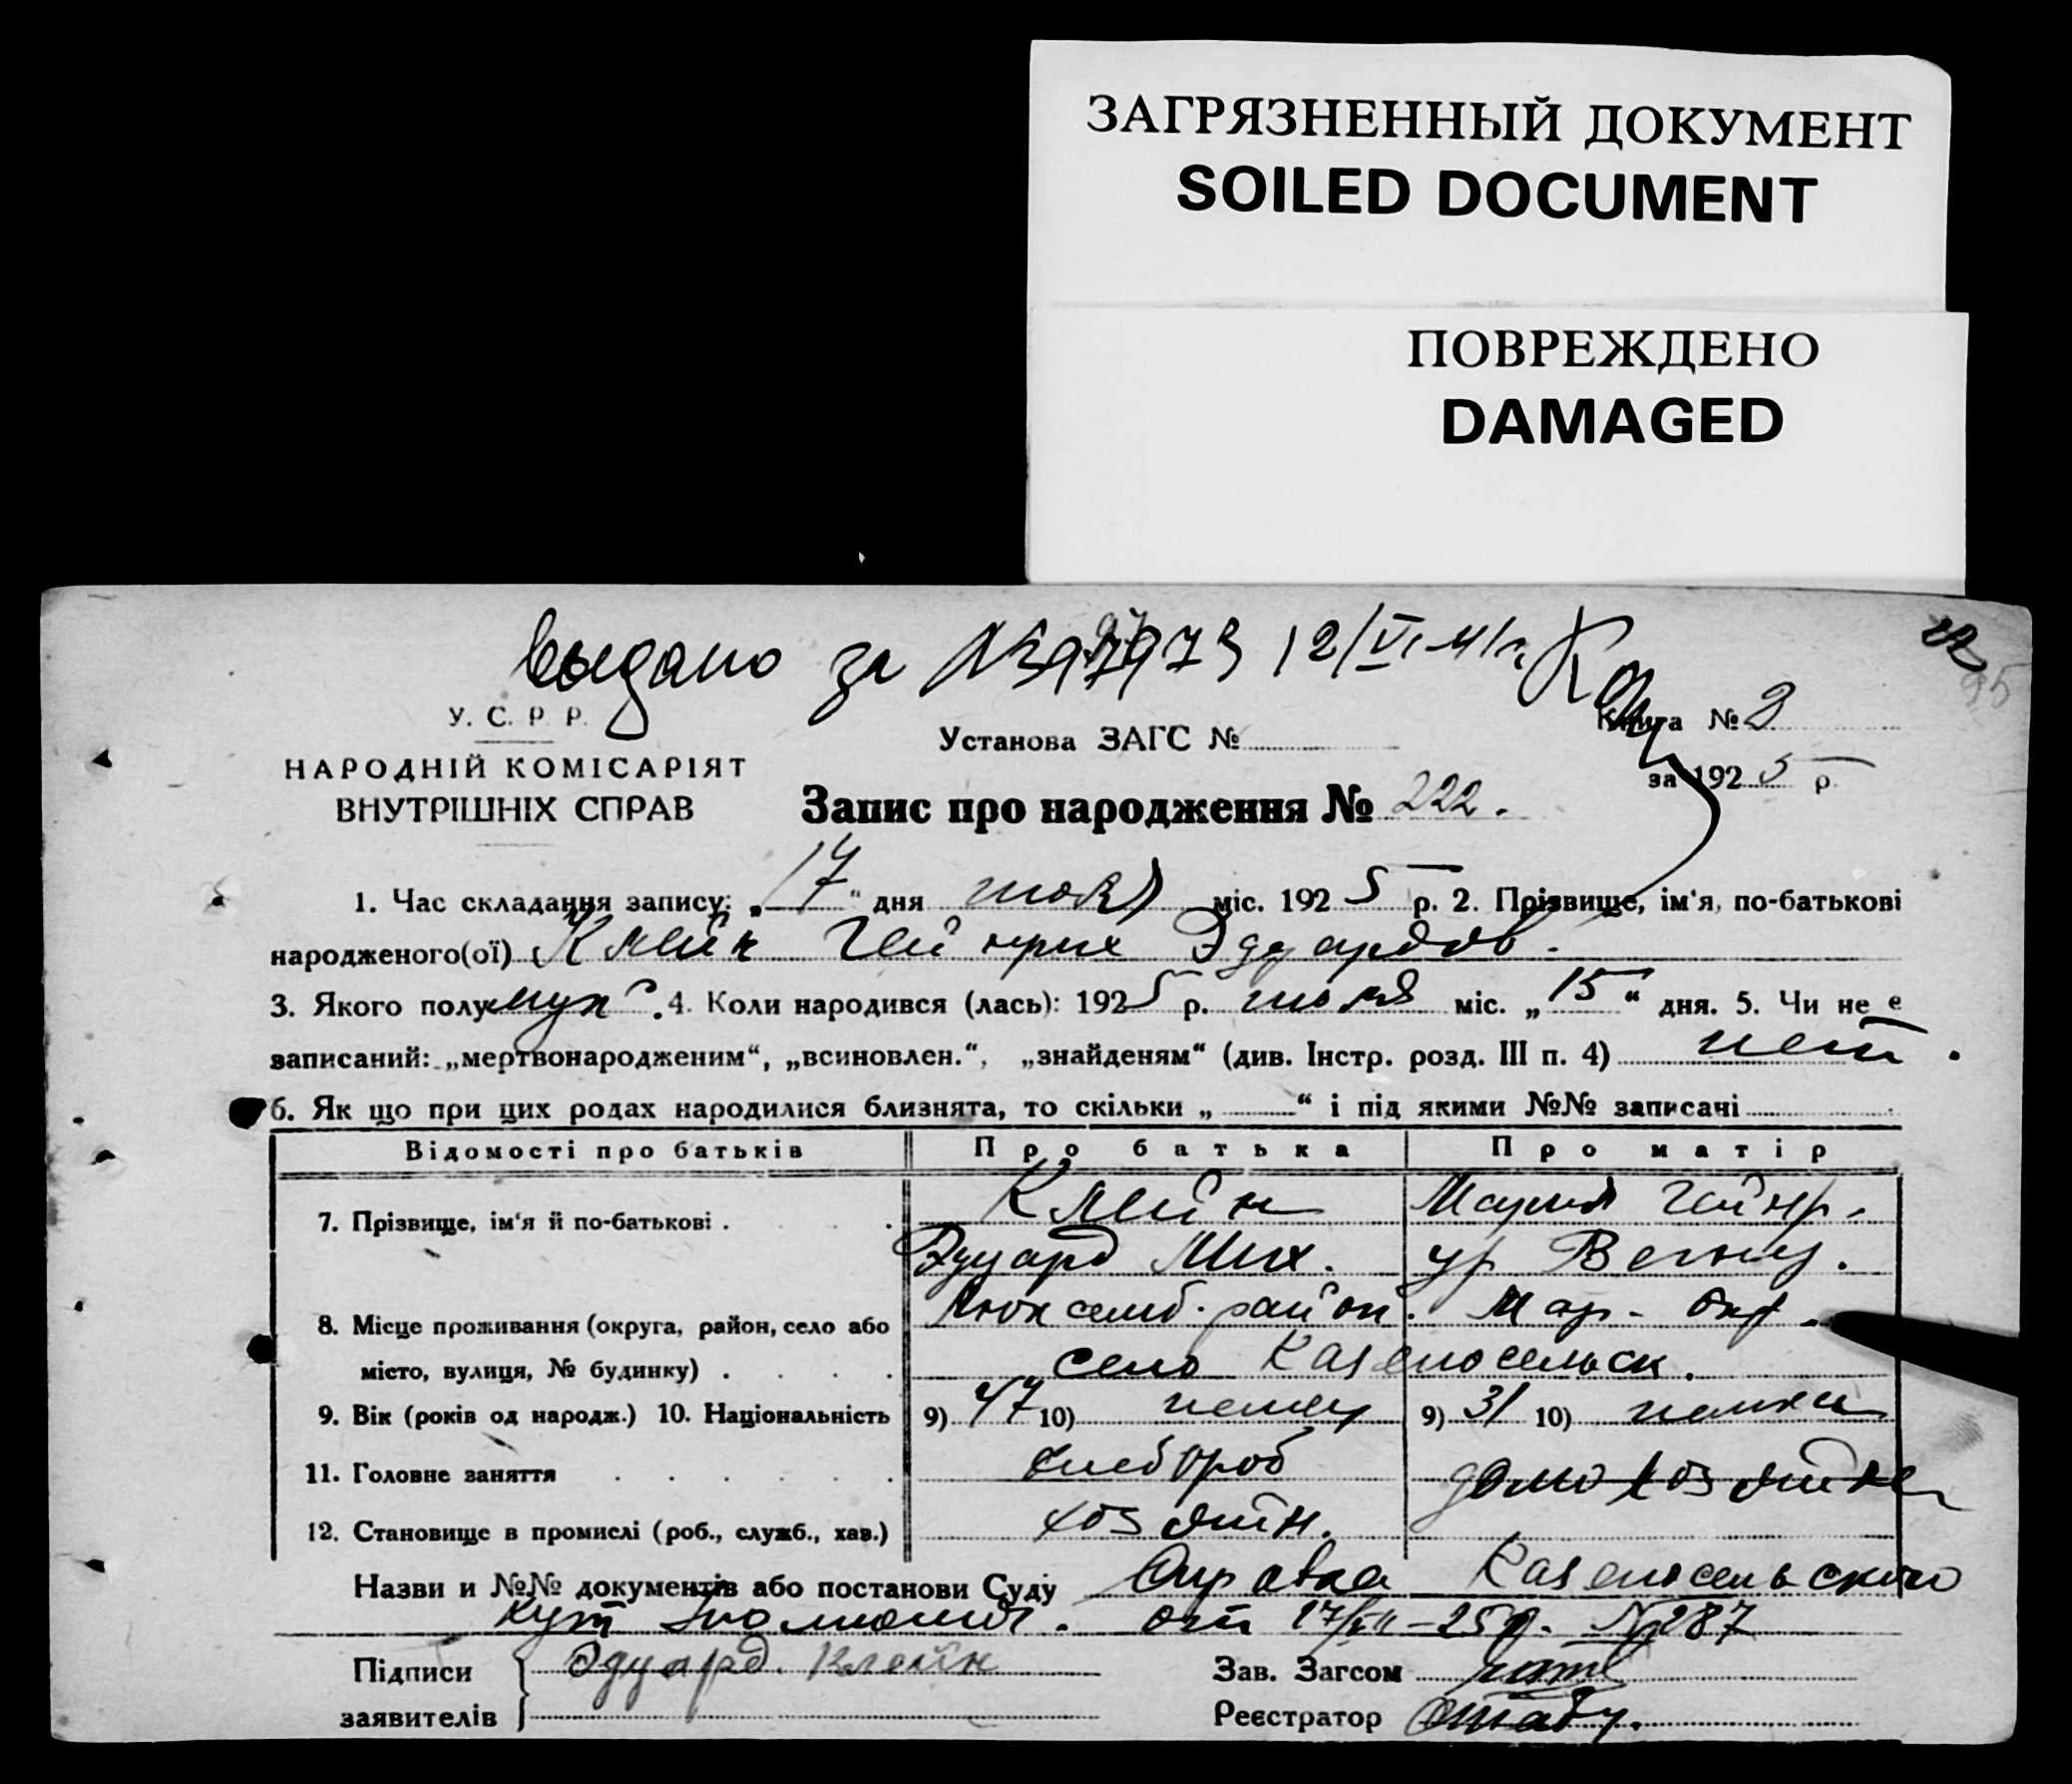 ЗАГРЯЗНЕННЫЙ ДОКУМЕНТ
SOILED DOCUMENT
ПОВРЕЖДЕНО
DAMAGED
выдано за 12/VI-41г.
У. С. Р. Р.
НАРОДНІЙ КОМІСАРІЯТ
ВНУТРІШНІХ СПРАВ
Установа ЗАГС №
Книга № 3
за 1925 р.
Запис про народження № 222.
1. Час складання запису: „17“ дня июля міс. 1925 р. 2. Прізвище, ім'я, по-батькові
народженого(ої) Клейн Гейнрих Эдуардов.
3. Якого полу муж. 4. Коли народився (лась): 1925 р. июля міс. „15“ дня. 5. Чи не є
записаний: „мертвонародженим“, „всиновлен.“, „знайденям“ (див. Інстр. розд. III п. 4) нет.
6. Як що при цих родах народилися близнята, то скільки „ “ і під якими №№ записані
Відомості про батьків Про батька Про матір
7. Прізвище, ім'я й по-батькові . Клейн Мария Гейнр.
Эдуард Мих. ур
8. Місце проживання (округа, район, село або Люксемб. район. Мар. окр.
місто, вулиця, № будинку) . село Казеносельск.
9. Вік (років од народж.) 10. Національність 9) 47 10) немец 9) 31 10) немка
11. Головне заняття хлебороб домохозяйка
12. Становище в промислі (роб., служб., хав.) хозяин.
Назви и №№ документів або постанови Суду Справка Казеносельского
от 17/VII-25г. № 287
Підписи Эдуард. Клейн Зав. Загсом
заявителів Реєстратор